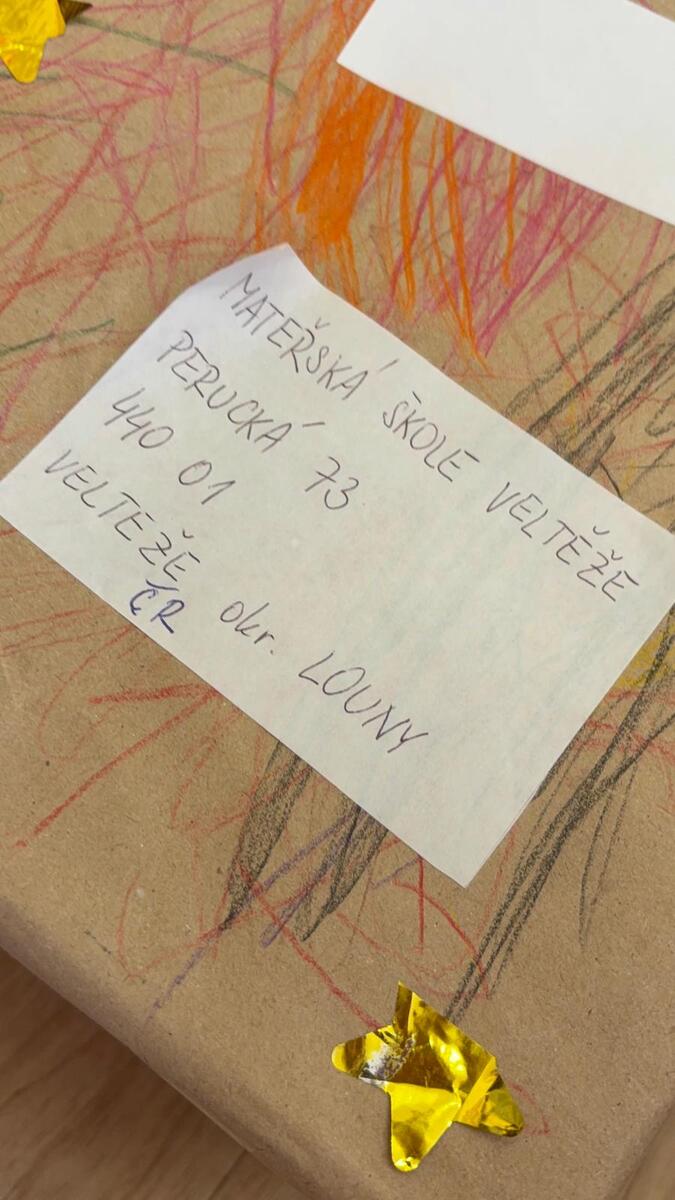 MATEŘSKÁ ŠKOLE VELTĚŽE
PERUCKÁ 73
440 01
VELTEŽE okr. LOUNY
ČR